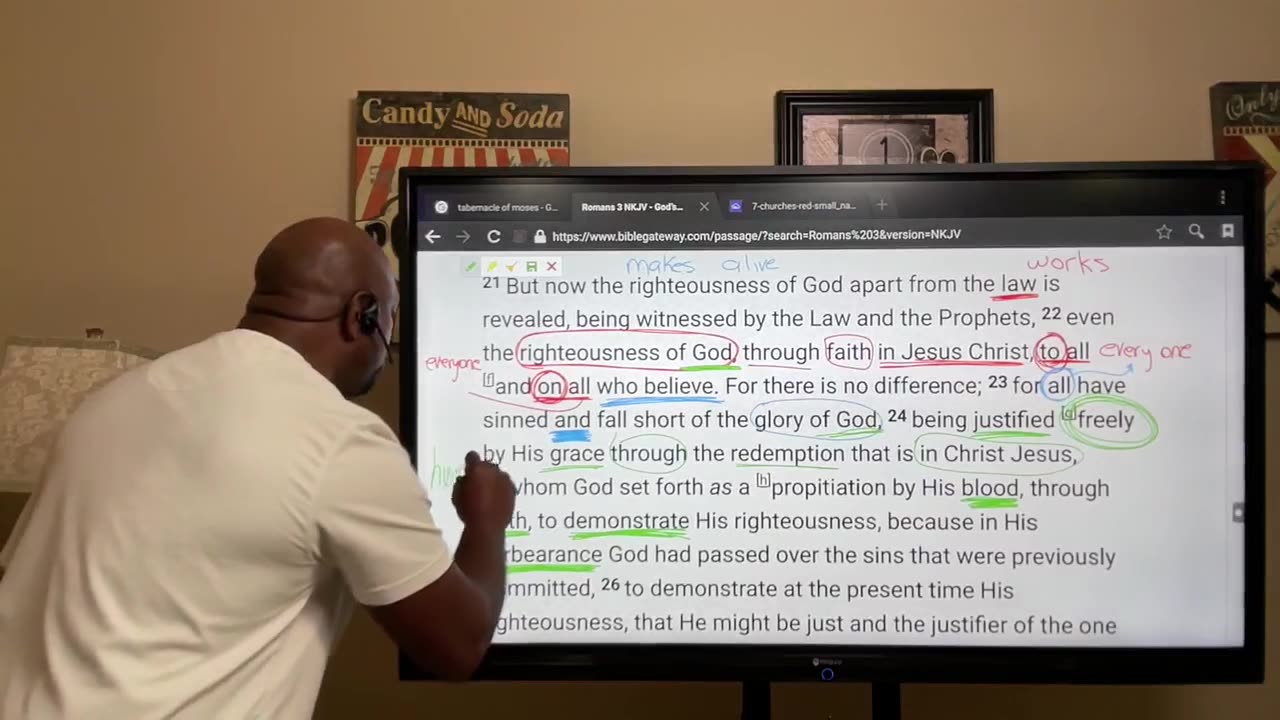 Candy AND Soda
1
Only
tabernacle of moses - G...
Romans 3 NKJV - God's...
7-churches-red-small_na...
https://www.biblegateway.com/passage/?search=Romans%203&version=NKJV
makes alive
works
21 But now the righteousness of God apart from the law is
revealed, being witnessed by the Law and the Prophets, 22 even
everyone the righteousness of God, through faith in Jesus Christ, to all every one
[f]and on all who believe. For there is no difference; 23 for all have
sinned and fall short of the glory of God, 24 being justified [g]freely
by His grace through the redemption that is in Christ Jesus,
whom God set forth as a [h]propitiation by His blood, through
th, to demonstrate His righteousness, because in His
rbearance God had passed over the sins that were previously
mmitted, 26 to demonstrate at the present time His
ghteousness, that He might be just and the justifier of the one